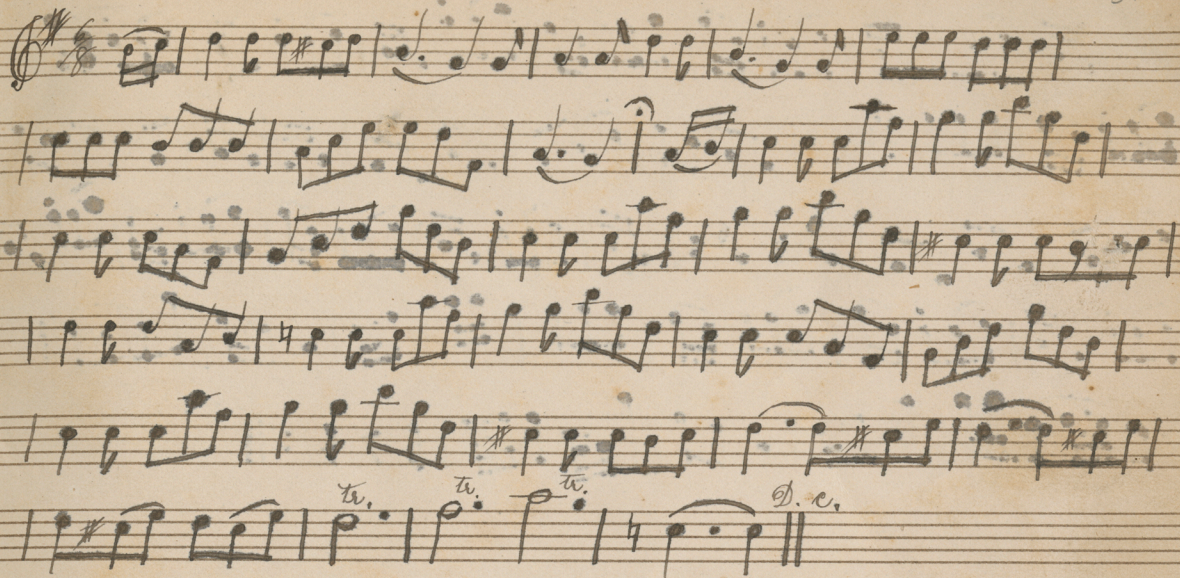 6
8
tr. tr. tr. D. C.